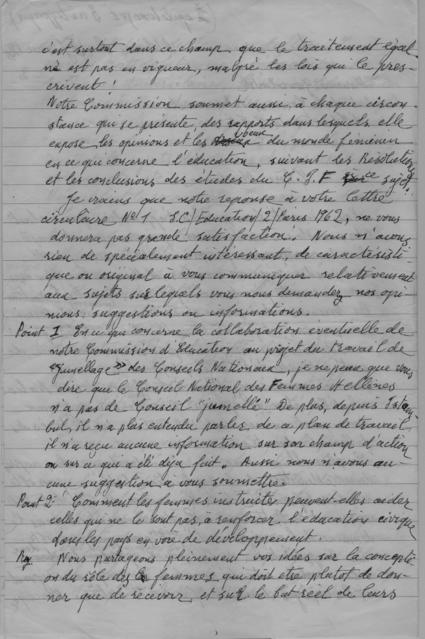 c'est surtout dans ce champ que le traitement égal
ne est pas en vigueur, malgré les lois qui le pres-
crivent!
Notre Commission soumet aussi à chaque circon-
stance qui se présente, des rapports dans lesquels elle
expose les opinions et les voeux du monde féminin
en ce qui concerne l'éducation, suivant les Résolutions
et les conclusions des études du C.I.F. sujet
Je crains que notre réponse à votre lettre
circulaire No 1 S.C/Education/2/Paris 1962, ne vous
donnera pas grande satisfaction. Nous n'avons
rien de spécialement intéressant, de caractéristi-
que ou original à vous communiquer relativement
aux sujets sur lequels vous nous demandez nos opi-
nions, suggestions ou informations.
Point I En ce qui concerne la collaboration éventielle de
notre Commission d'Education au projet du travail de
"Jumellage" des Conseils Nationaux, je ne peux que vous
dire que le Conseil National des Femmes Hellènes
n'a pas de Conseil "jumellé" De plus, depuis Istam-
bul, il n'a plus entendu parler de ce plan de travail
il n'a reçu aucune information sur son champ d'action
ou sur ce qui a été déja fait. Aussi nous n'avons au-
cune suggestion a vous soumettre.
Point 2 Comment les femmes instruites peuvent-elles aider
celles qui ne le sont pas, à renforcer l'éducation civique
dans les pays en voie de développement.
Nous partageons pleinement vos idées, sur la concepti-
on du rôle des femmes, qui doit etre plutot de don-
ner que de recevoir et sur le but réel de leurs